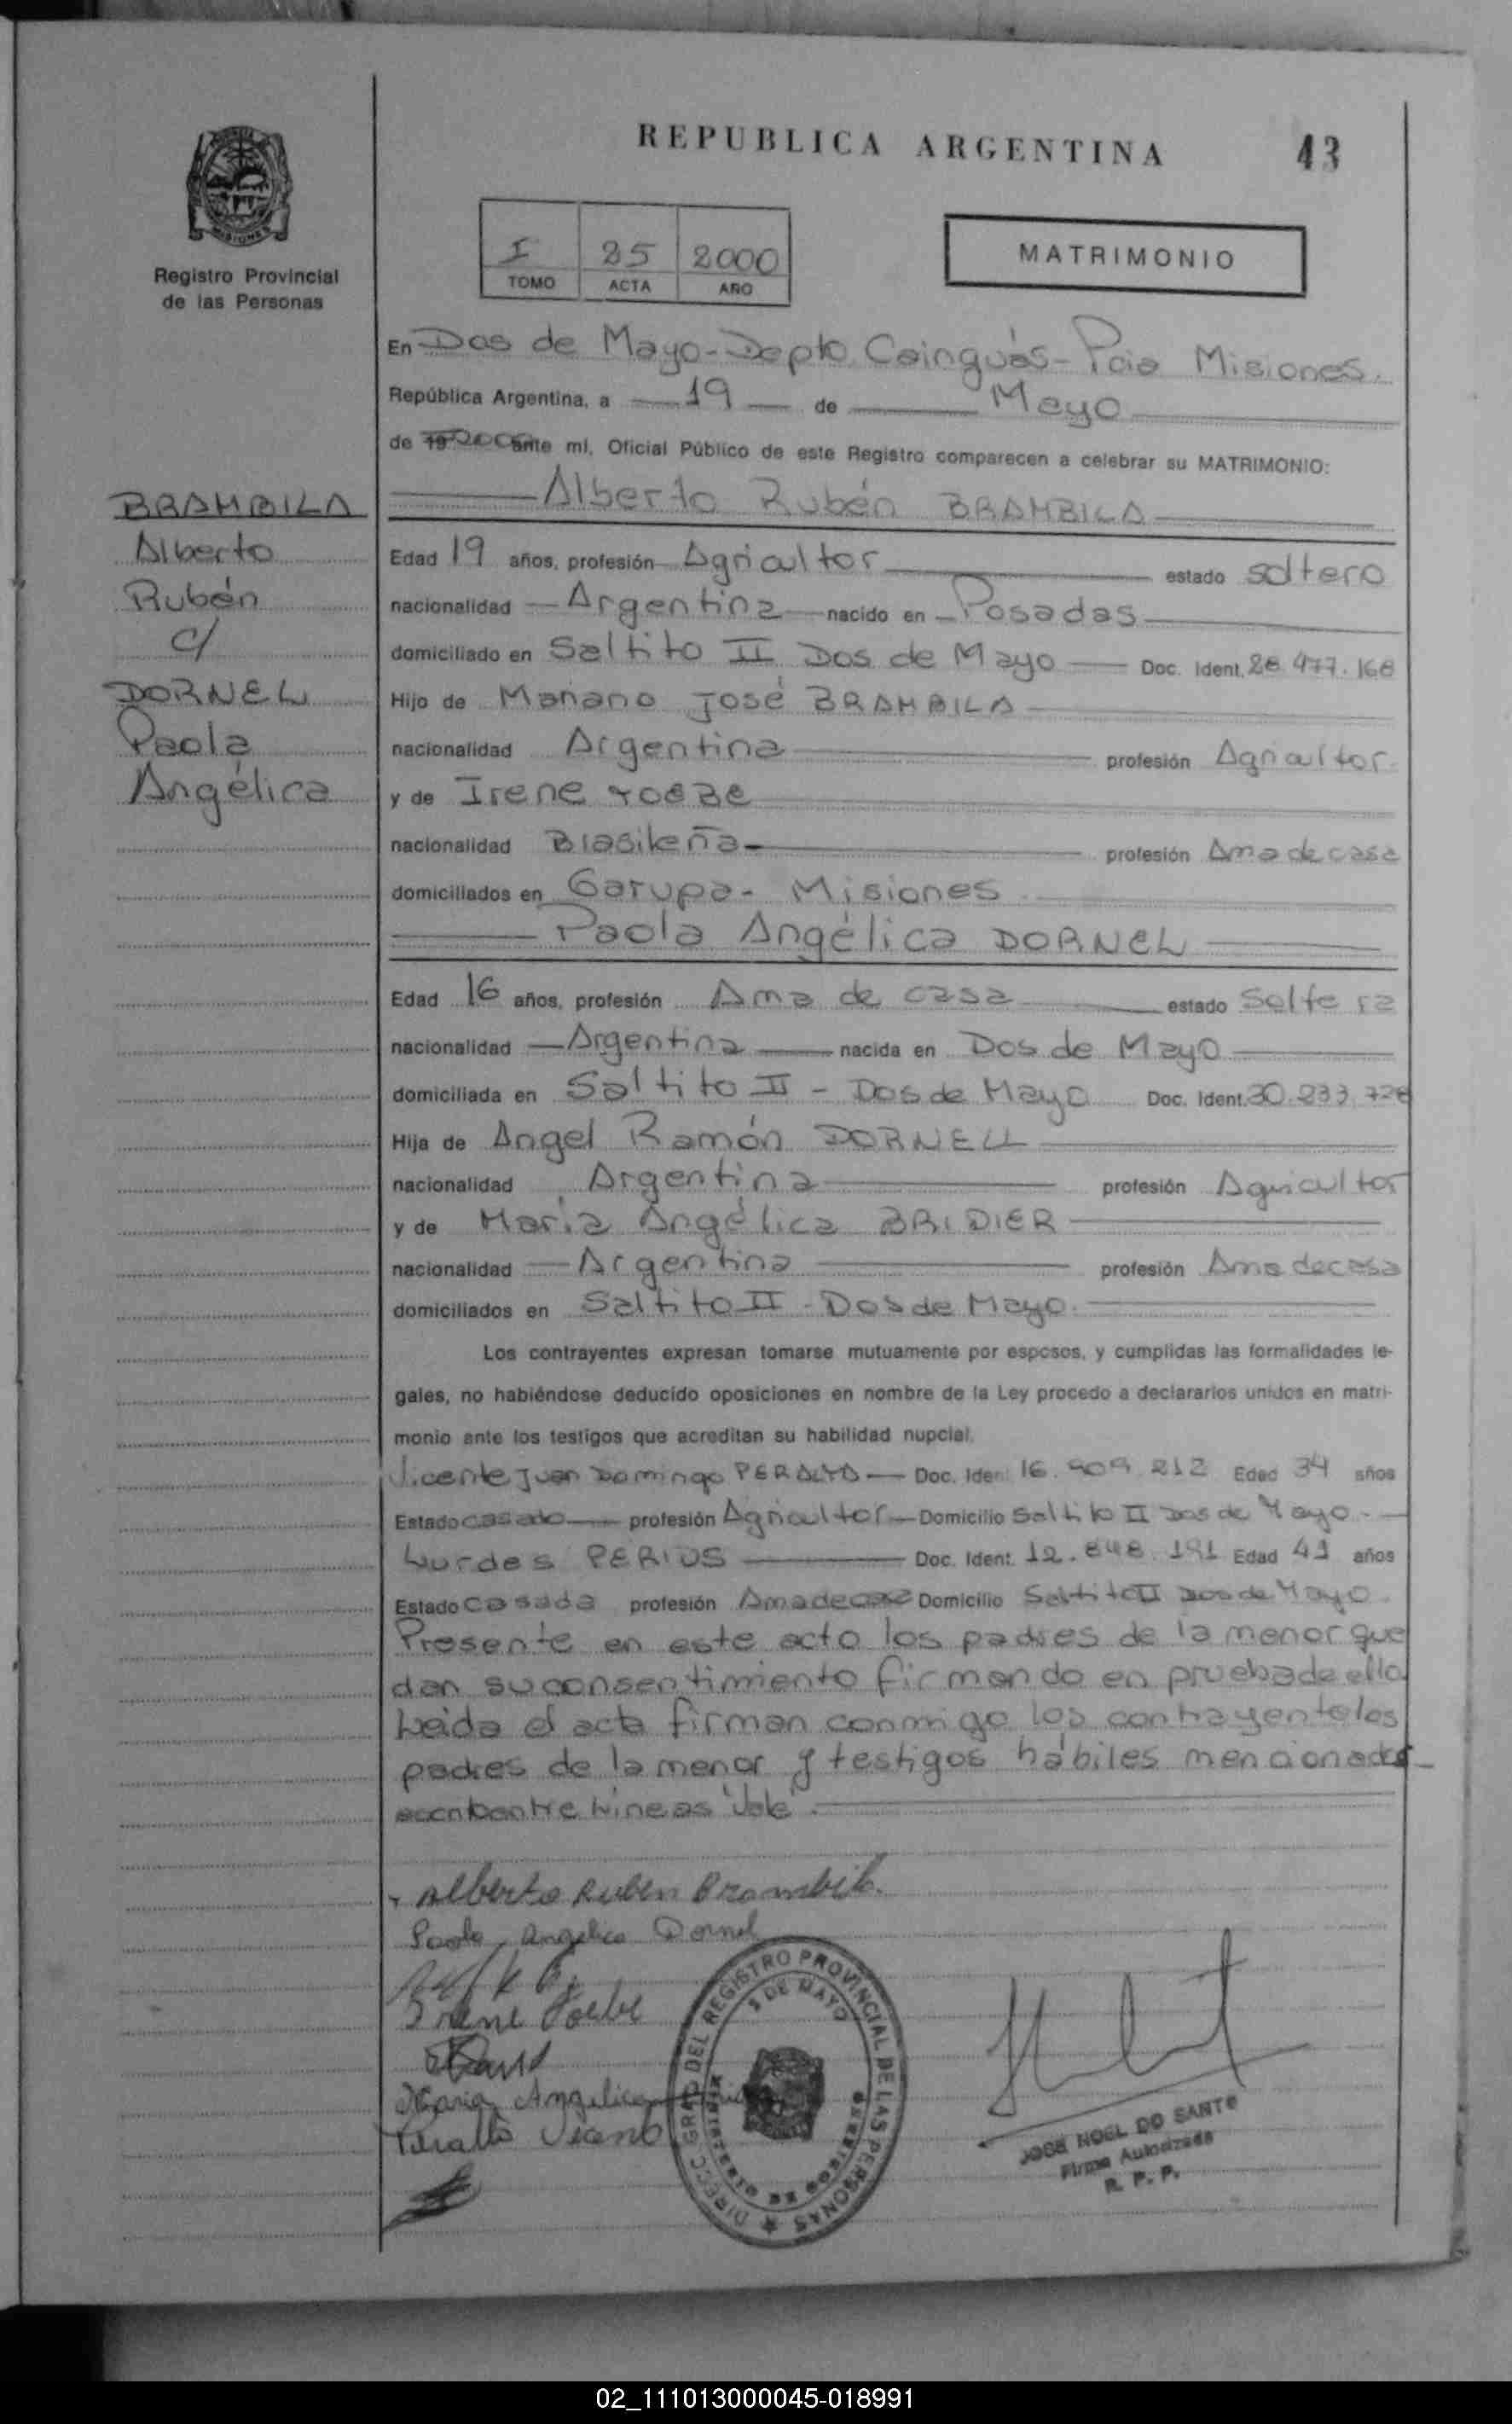 REPUBLICA ARGENTINA
43
MISIONES
Registro Provincial
de las Personas
I 25 2000
TOMO ACTA AÑO
MATRIMONIO
En Dos de Mayo-Depto. Cainguás-Pcia Misiones.
República Argentina, a 19 de Mayo
de 19 2000 ante mí, Oficial Público de este Registro comparecen a celebrar su MATRIMONIO:
Alberto Rubén BRAMBILA
BRAMBILA
Alberto
Rubén
c/
DORNEL
Paola
Angélica
Edad 19 años, profesión Agricultor estado soltero
nacionalidad Argentina nacido en Posadas
domiciliado en Saltito II Dos de Mayo Doc. Ident. 28.477.168
Hijo de Mariano José BRAMBILA
nacionalidad Argentina profesión Agricultor
y de Irene
nacionalidad Brasileña profesión Ama de casa
domiciliados en Garupa- Misiones
Paola Angélica DORNEL
Edad 16 años, profesión Ama de casa estado Soltera
nacionalidad Argentina nacida en Dos de Mayo
domiciliada en Saltito II - Dos de Mayo Doc. Ident. 30.233.728
Hija de Angel Ramón DORNELL
nacionalidad Argentina profesión Agricultor
y de María Angélica BRIDIER
nacionalidad Argentina profesión Ama de casa
domiciliados en Saltito II - Dos de Mayo.
Los contrayentes expresan tomarse mutuamente por esposos, y cumplidas las formalidades le-
gales, no habiéndose deducido oposiciones en nombre de la Ley procedo a declararlos unidos en matri-
monio ante los testigos que acreditan su habilidad nupcial.
Vicente Juan Domingo PERALTA Doc. Iden. 16.909.212 Edad 34 años
Estado casado profesión Agricultor Domicilio Saltito II Dos de Mayo.
Lurdes PERIUS Doc. Ident. 12.848.191 Edad 41 años
Estado Casada profesión Ama de casa Domicilio Saltito II Dos de Mayo.
Presente en este acto los padres de la menor que
dan su consentimiento firmando en prueba de ella
Leida el acta firman conmigo los contrayente los
padres de la menor y testigos hábiles mencionados
entre Lineas Vale.
Alberto Ruben Brambila.
Paola Angelica Dornel
Irene Yoebe
Maria Angelica
Peralta Vicente
DIREC. GRAL. DEL REGISTRO PROVINCIAL DE LAS PERSONAS
2 DE MAYO
MINISTERIO DE GOBIERNO
JOSE NOEL DO SANTO
Firma Autorizada
R. P. P.
02_111013000045-018991